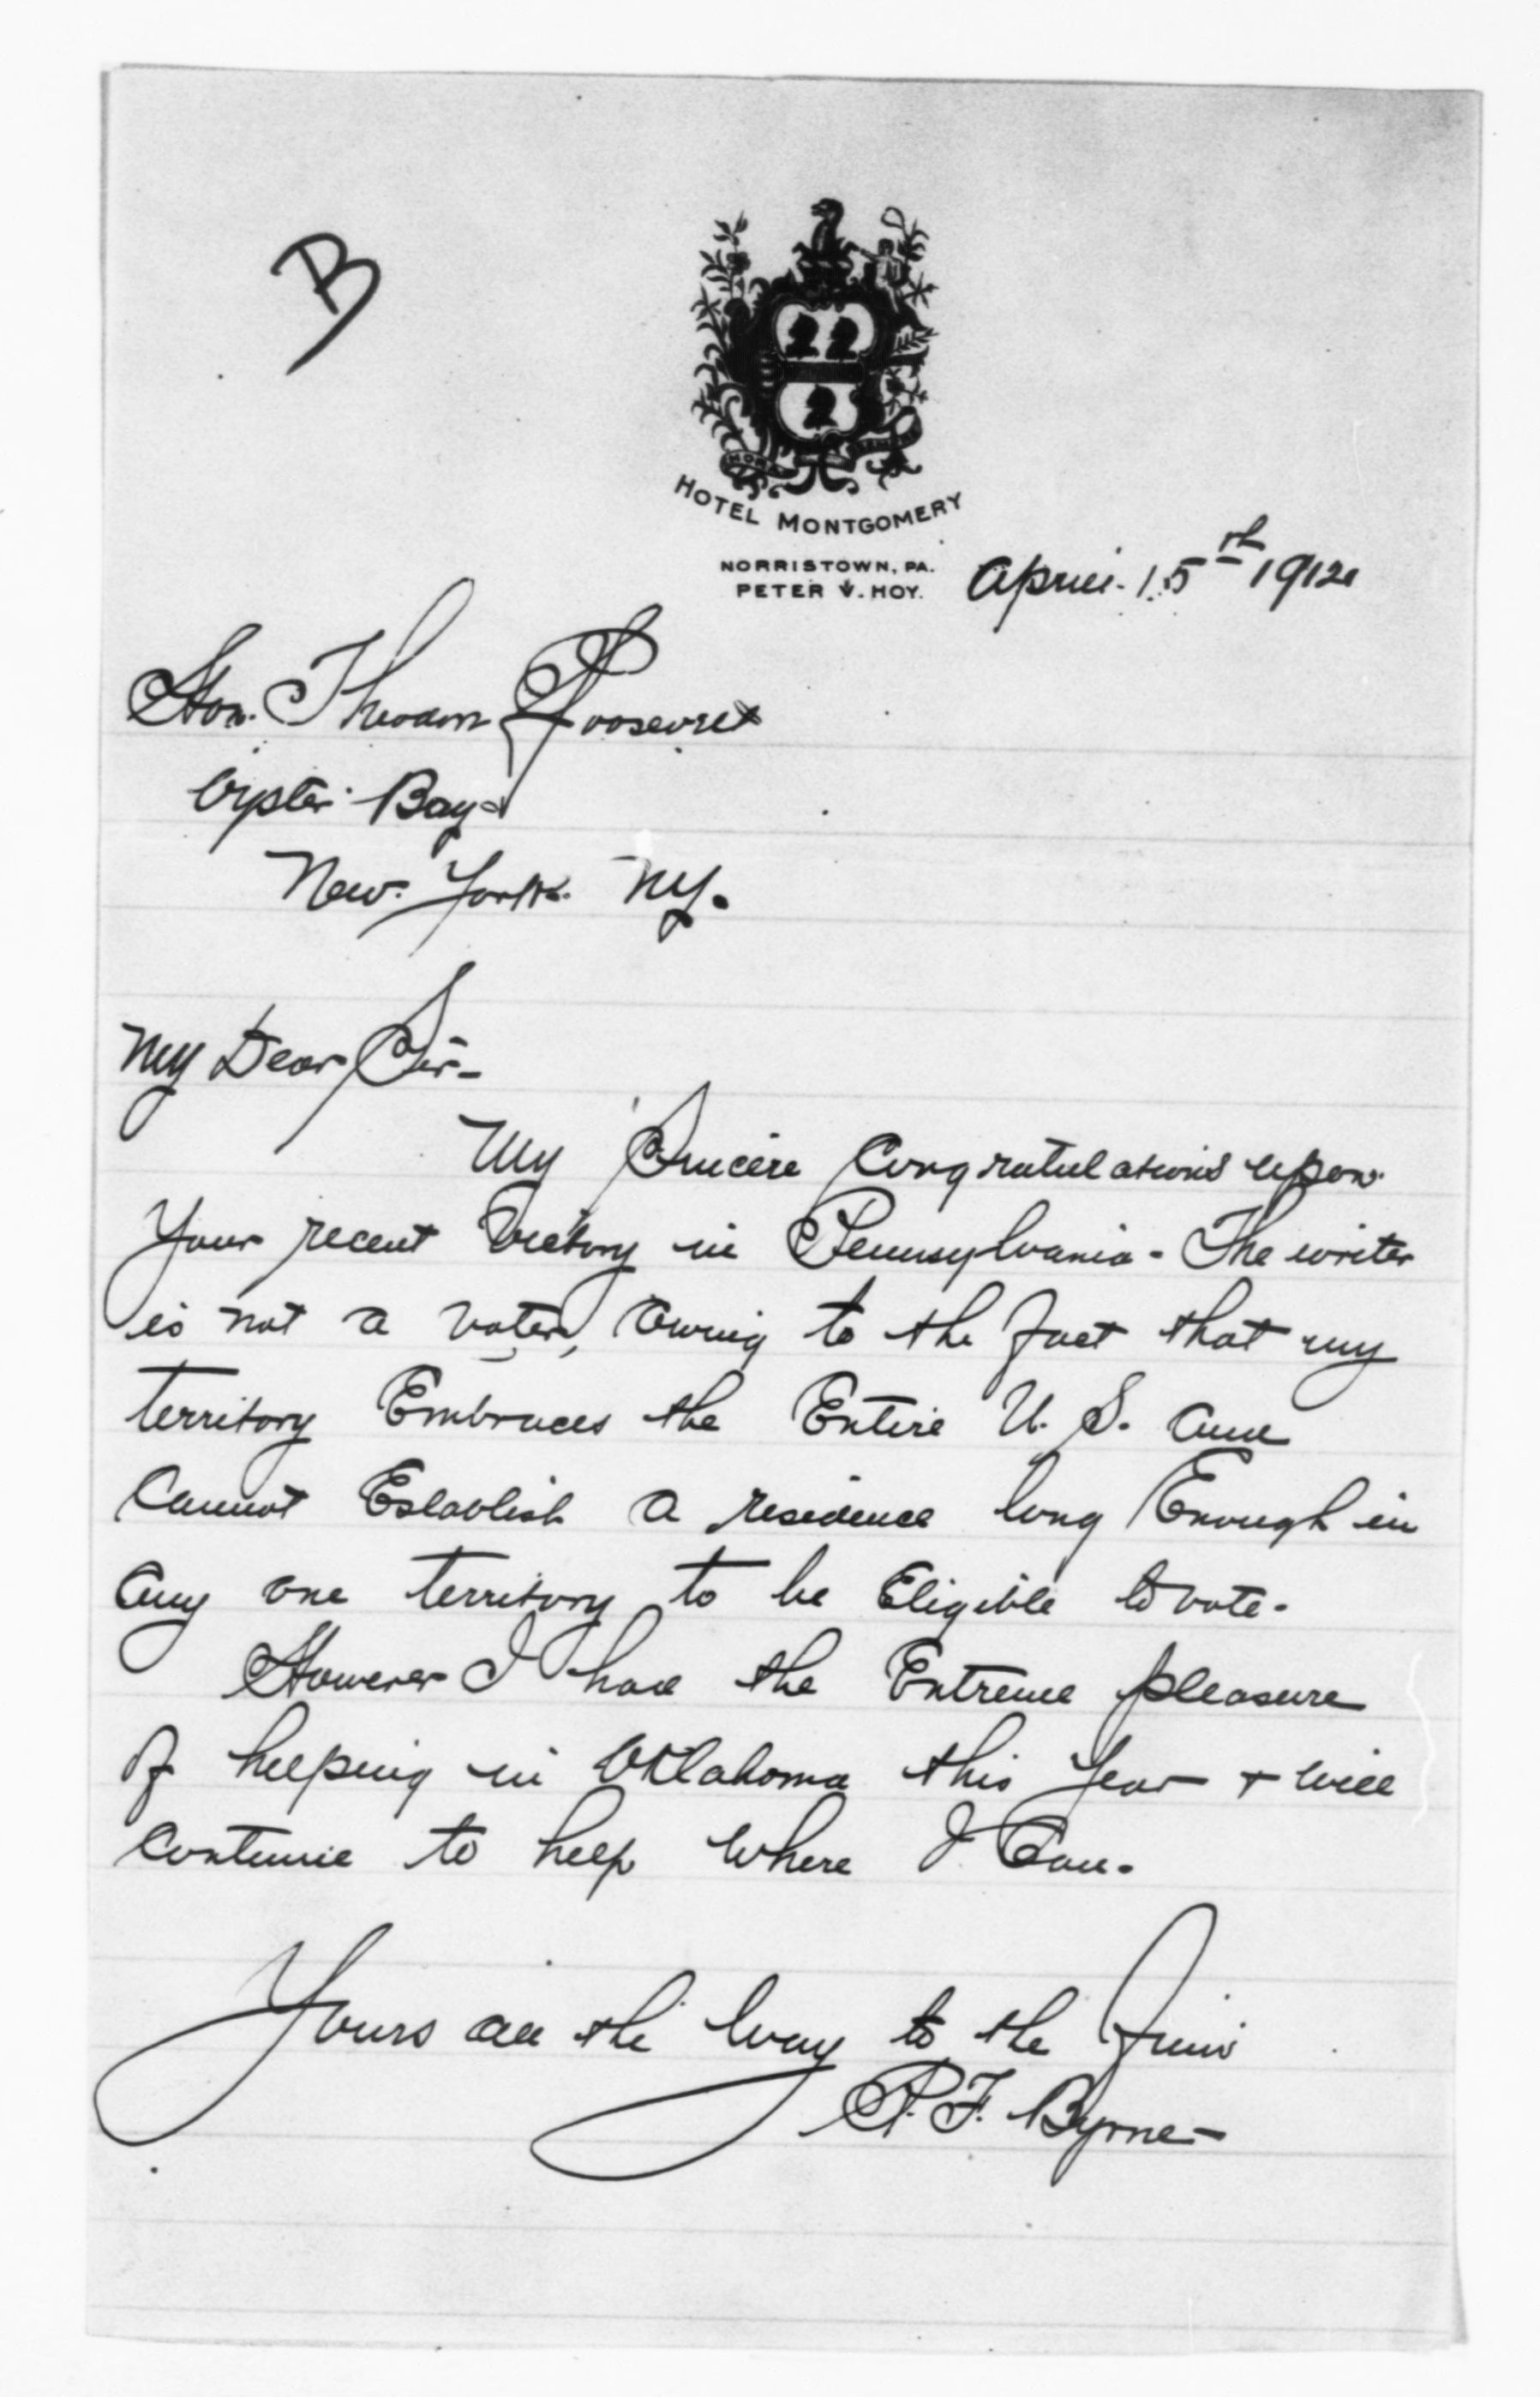 B
HOTEL MONTGOMERY
NORRISTOWN, PA.
PETER V. HOY.
April. 15th 1912
Hon. Theodore Roosevelt
Oyster Bay
New York. NY.
My Dear Sir-
My Sincere Congratulations upon
Your recent Victory in Pennsylvania - The writer
is not a voter, owing to the fact that my
territory Embraces the Entire U. S. and
Cannot Establish a residence long Enough in
any one territory to be Eligible to vote-
However I had the Extreme pleasure
of helping in Oklahoma this Year + will
Continue to help Where I Can.
Yours all the Way to the Finis
P. F. Byrne-